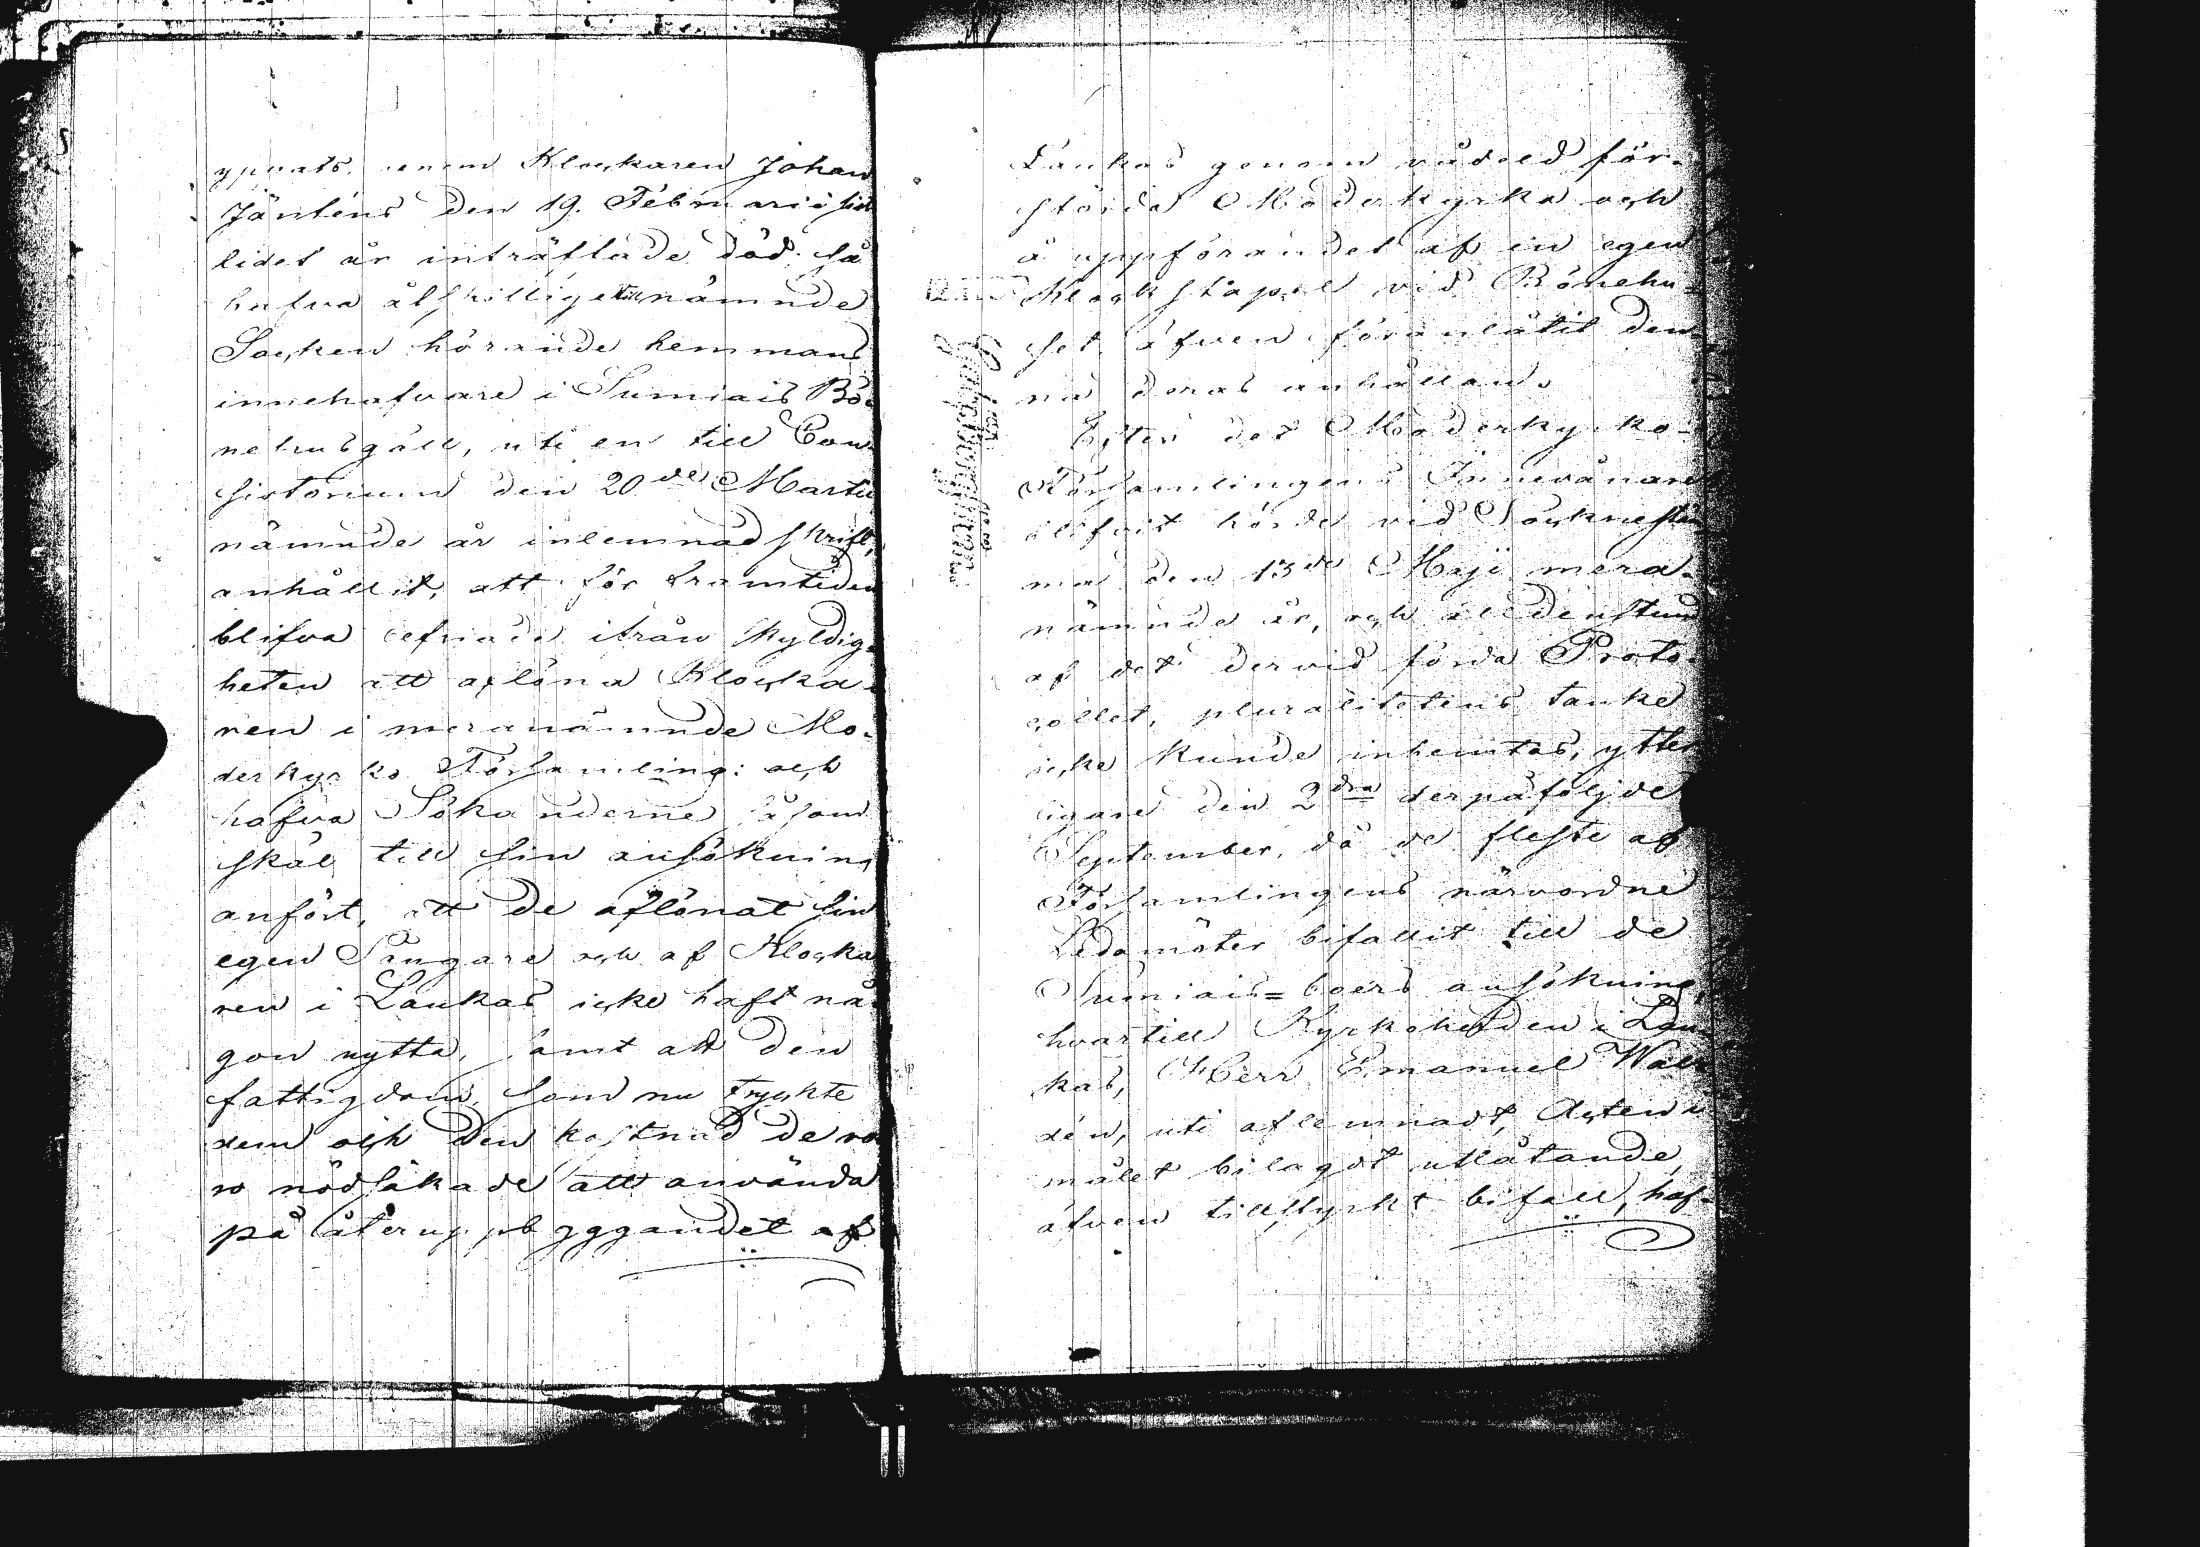 yppats, genom Klockaren Johan
Jänténs den 19. Februarii sist
lidet år inträffade död. så
hafva åtskillige till nämnde
Socken hörande hemmans
innehafvare i Sumiais Bö-
nehusgäll, uti en till Con-
sistorium den 20de Martii
nämnde år inlemnad skrift,
anhållit, att för framtiden
blifva befriade ifrån skyldig-
heten att aflöna Klocka-
ren i meranämnde Mo-
derkyrko Församling: och
hafva Sökanderne såsom
skäl till sin ansökning
anfört, att de aflönat sin
egen Sångare och af Klocka
ren i Laukas icke haft nå-
gon nytta, samt att den
fattigdom, som nu tryckte
dem och den kostnad de vo
ro nödsakade att använda
på återuppbyggandet af
Laukas genom vådeld för-
störda Moderkyrka och
å uppförandet af en egen
Klockstapel vid Bönehu-
set äfven föranlåtit den
na deras anhållan.
Efter det Moderkyrko-
Församlingens Innevånare
blifvit hörde vid Sockneståm
ma den 13de Maji mera-
nämnde år, och alldenstund
af det dervid förda Proto-
collet, pluralitetens tanke
icke kunde inhemtas, ytter
ligare den 2dra derpåföljde
September, då de fleste af
Församlingens närvordne
Ledamöter bifallit till de
Sumiais=boers ansökning,
hvartill Kyrkoherden i Lau-
kas, Herr Emanuel Wale
rén, uti aflemnadt, Acten i
målet bilagdt utlåtande,
äfven tillstyrkt bifall, haf-